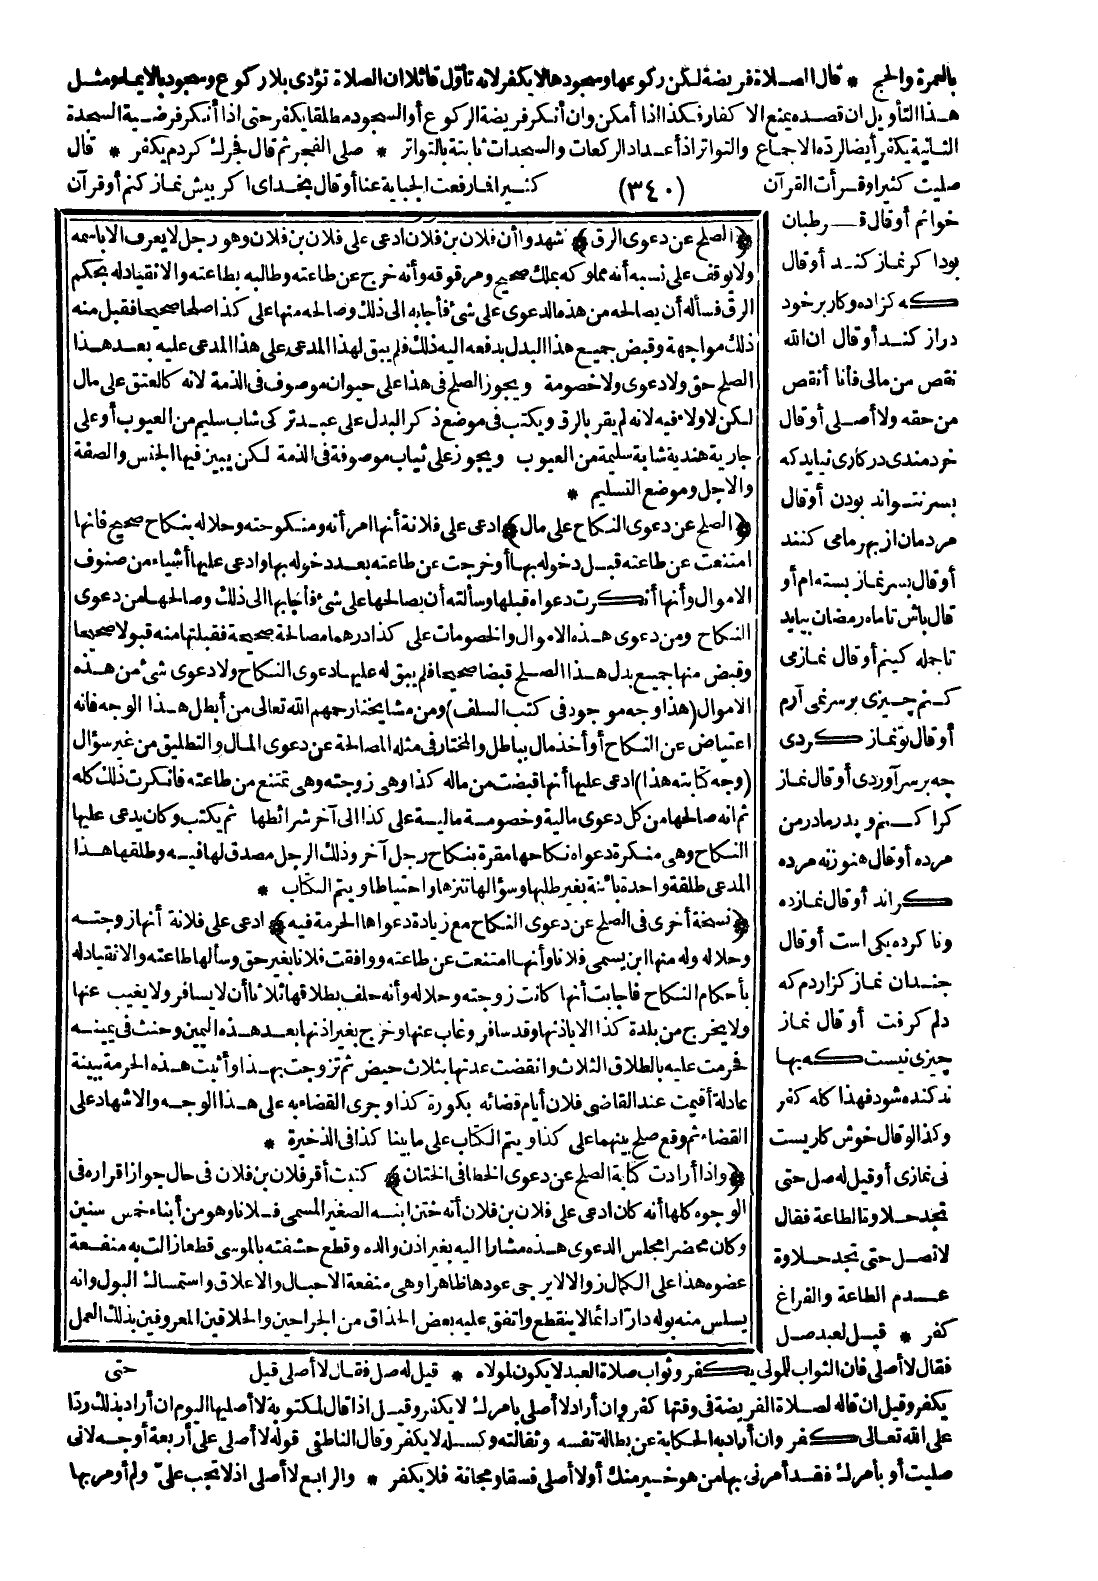 بالعمرة والحج * قال الصلاة فريضة لكن ركوعها وسجودها لا يكفر لانه تأول قائلا ان الصلاة تؤدى بلا ركوع وسجود بالايماء ومثل
هذا التأويل ان قصده يمنع الاكفار فكذا اذا أمكن وان أنكر فريضة الركوع أو السجود مطلقا يكفر حتى اذا أنكر فرضية السجدة
الثانية يكفر أيضا لرده الاجماع والتواتر اذ أعداد الركعات والسجدات ثابتة بالتواتر * صلى الفجر ثم قال فجرك كردم يكفر * قال
صليت كثيرا وقرأت القرآن (٣٤٠) كثيرا فما رفعت الجباية عنا أو قال بخداى اكر بيش نماز كنم أو قرآن
خوانم أو قال قرطبان
بود اكر نماز كند أو قال
كه كزاده وكار بر خود
دراز كند أو قال ان الله
نقص من مالى فأنا أنقص
من حقه ولا أصلى أو قال
خردمندى در كارى نيايد كه
بسر نتواند بودن أو قال
مردمان از بهر ما مى كنند
أو قال بسر نماز بسته ام أو
قال باش تا ماه رمضان بيايد
تا جمله كنيم أو قال نماز مى
كنم چيزى بر سر نمى آرم
أو قال تو نماز كردى
چه بر سر آوردى أو قال نماز
كرا كنم و پدر مادر من
مرده أو قال هنوز نه مرده
كراند أو قال نمازده
ونا كرده يكى است أو قال
چندان نماز كزاردم كه
دلم كرفت أو قال نماز
چيزى نيست كه بها
ند كنده شود فهذا كله كفر
وكذا لو قال خوش كاريست
نى نمازى أو قيل له صل حتى
تجد حلاوة الطاعة فقال
لا تصل حتى تجد حلاوة
عدم الطاعة والفراغ
كفر * قيل لعبد صل
﴿الصلح عن دعوى الرق﴾ شهدوا أن فلان بن فلان ادعى على فلان بن فلان وهو رجل لا يعرف الا باسمه
ولا يوقف على نسبه أنه مملوكه بملك صحيح ومرقوقه وأنه خرج عن طاعته وطالبه بطاعته والانقياد له بحكم
الرق فسأله أن يصالحه من هذه الدعوى على شئ فأجابه الى ذلك وصالحه منها على كذا صلحا صحيحا فقبل منه
ذلك مواجهة وقبض جميع هذا البدل بدفعه اليه ذلك فلم يبق لهذا المدعى على هذا المدعى عليه بعد هذا
الصلح حق ولا دعوى ولا خصومة ويجوز الصلح فى هذا على حيوان موصوف فى الذمة لانه كالعتق على مال
لكن لا ولاء فيه لانه لم يقر بالرق ويكتب فى موضع ذكر البدل على عبد تركى شاب سليم من العيوب أو على
جارية هندية شابة سليمة من العيوب ويجوز على ثياب موصوفة فى الذمة لكن يبين فيها الجنس والصفة
والاجل وموضع التسليم *
﴿الصلح عن دعوى النكاح على مال﴾ ادعى على فلانة أنها امرأته ومنكوحته وحلاله بنكاح صحيح فانها
امتنعت عن طاعته قبل دخوله بها أو خرجت عن طاعته بعد دخوله بها وادعى عليها أشياء من صنوف
الاموال وأنها أنكرت دعواه قبلها وسألته أن يصالحها على شئ فأجابها الى ذلك وصالحها من دعوى
النكاح ومن دعوى هذه الاموال والخصومات على كذا درهما مصالحة صحيحة فقبلتها منه قبولا صحيحا
وقبض منها جميع بدل هذا الصلح قبضا صحيحا فلم يبق له عليها دعوى النكاح ولا دعوى شئ من هذه
الاموال (هذا وجه موجود فى كتب السلف) ومن مشايخنا رحمهم الله تعالى من أبطل هذا الوجه فانه
اعتياض عن النكاح أو أخذ مال بباطل والمختار فى مثله المصالحة عن دعوى المال والتطليق من غير سؤال
(وجه كتابته هذا) ادعى عليها أنها قبضت من ماله كذا وهى زوجته وهى تمتنع من طاعته فانكرت ذلك كله
ثم انه صالحها من كل دعوى مالية وخصومة مالية على كذا الى آخر شرائطها ثم يكتب وكان يدعى عليها
النكاح وهى منكرة دعواه نكاحها مقرة بنكاح رجل آخر وذلك الرجل مصدق لها فيه وطلقها هذا
المدعى طلقة واحدة بائنة بغير طلبها وسؤالها تنزها واحتياطا ويتم الكتاب *
﴿نسخة أخرى فى الصلح عن دعوى النكاح مع زيادة دعواها الحرمة فيه﴾ ادعى على فلانة أنها زوجته
وحلاله وله منها ابن يسمى فلانا وأنها امتنعت عن طاعته ووافقت فلانا بغير حق وسألها طاعته والانقياد له
بأحكام النكاح فاجابت أنها كانت زوجته وحلاله وأنه حلف بطلاقها ثلاثا أن لا يسافر ولا يغيب عنها
ولا يخرج من بلدة كذا الا باذنها وقد سافر وغاب عنها وخرج بغير اذنها بعد هذه اليمين وحنث فى يمينه
فحرمت عليه بالطلاق الثلاث وانقضت عدتها بثلاث حيض ثم تزوجت بهذا وأثبتت هذه الحرمة ببينة
عادلة أقيمت عند القاضى فلان أيام قضائه بكورة كذا وجرى القضاء به على هذا الوجه والاشهاد على
القضاء ثم وقع صلح بينهما على كذا ويتم الكتاب على ما بينا كذا فى الذخيرة *
﴿واذا أرادت كتابة الصلح عن دعوى الخطا فى الختان﴾ كتبت أقر فلان بن فلان فى حال جواز اقراره فى
الوجوه كلها أنه كان ادعى على فلان بن فلان أنه ختن ابنه الصغير المسمى فلانا وهو من أبناء خمس سنين
وكان محضرا مجلس الدعوى هذه مشارا اليه بغير اذن والده وقطع حشفته بالموسى قطعا زالت به منفعة
عضوه هذا على الكمال زوالا لا يرجى عودها ظاهرا وهى منفعة الاحبال والاعلاق واستمساك البول وانه
يسلس منه بوله دارّا دائما لا ينقطع واتفق عليه بعض الحذاق من الجراحين والحلاقين المعروفين بذلك العمل
فقال لا أصلى فان الثواب للمولى يكفر وثواب صلاة العبد لا يكون لمولاه * قيل له صل فقال لا أصلى قيل حتى
يكفر وقيل ان قاله لصلاة الفريضة فى وقتها كفر وان أراد لا أصلى بأمرك لا يكفر وقيل اذا قال لمكتوبة لا أصليها اليوم ان أراد بذلك ردّا
على الله تعالى كفر وان أراد به الحكاية عن بطالة نفسه وثقالته وكسله لا يكفر وقال الناطفى قوله لا أصلى على أربعة أوجه لانى
صليت أو بأمرك فقد أمرنى بها من هو خير منك أو لا أصلى فسقا ومجانة فلا يكفر * والرابع لا أصلى اذ لا تجب علىّ ولم أومر بها